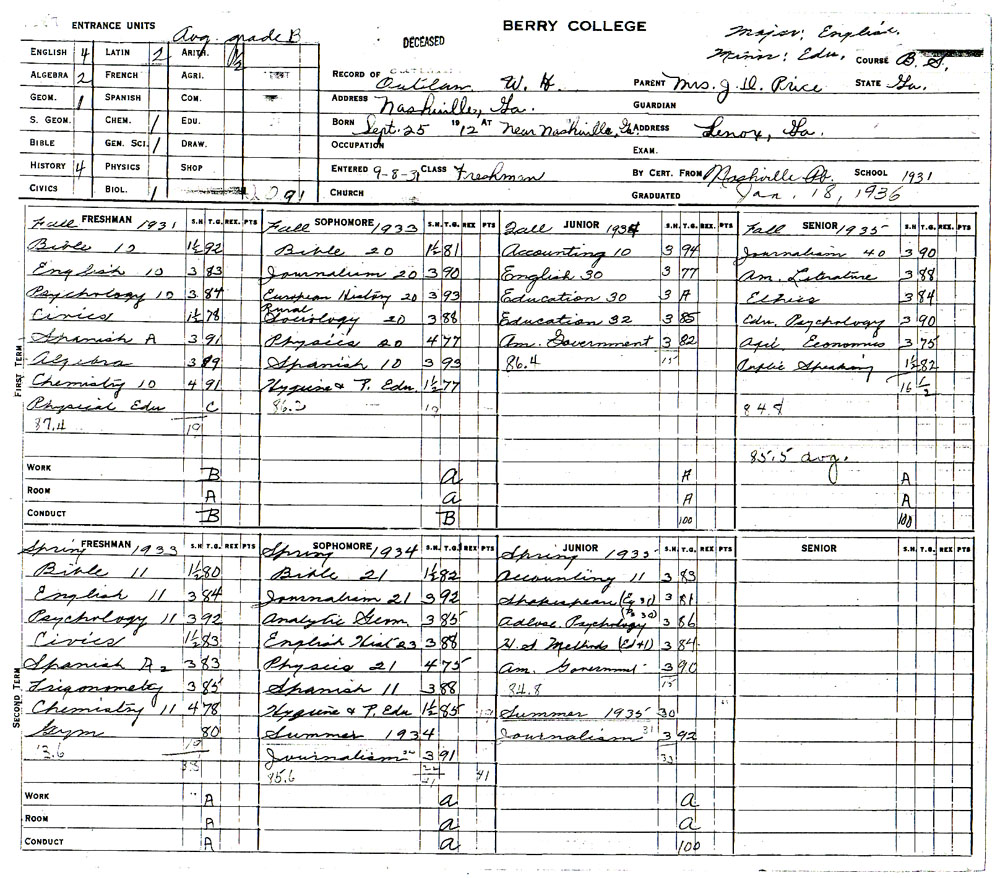 ENTRANCE UNITS Avg. grade B
BERRY COLLEGE
DECEASED
Major: English.
Minn: Edu. COURSE B.S.
ENGLISH 4 LATIN 2 ARITH. 1/2
ALGEBRA 2 FRENCH AGRI.
GEOM. 1 SPANISH COM.
S. GEOM. CHEM. 1 EDU.
BIBLE GEN. SCI. 1 DRAW.
HISTORY 4 PHYSICS SHOP
CIVICS BIOL. 1 91
RECORD OF Outlaw W. H. PARENT Mrs. J. D. Price STATE Ga.
ADDRESS Nashville, Ga. GUARDIAN
BORN Sept. 25 1912 AT Near Nashville, Ga ADDRESS Lenox, Ga.
OCCUPATION EXAM.
ENTERED 9-8-31 CLASS Freshman BY CERT. FROM Nashville SCHOOL 1931
CHURCH GRADUATED Jan. 18, 1936
FIRST TERM
Fall FRESHMAN 1931 S.H. T.G. REX. PTS
Bible 10 1½ 92
English 10 3 83
Psychology 10 3 84
Civics 1½ 78
Spanish A 3 91
Algebra 3 89
Chemistry 10 4 91
Physical Edu C
87.4 19
WORK B
ROOM A
CONDUCT B
Fall SOPHOMORE 1933 S.H. T.G. REX. PTS
Bible 20 1½ 81
Journalism 20 3 90
European History 20 3 93
Rural Sociology 20 3 88
Physics 20 4 77
Spanish 10 3 93
Hygiene & P. Edu. 1½ 77
86.2 19
a
a
B
Fall JUNIOR 1934 S.H. T.G. REX. PTS
Accounting 10 3 94
English 30 3 77
Education 30 3 A
Education 32 3 85
Am. Government 3 82
86.4 15
A
A
100
Fall SENIOR 1935 S.H. T.G. REX. PTS
Journalism 40 3 90
Am. Literature 3 88
Ethics 3 84
Edu. Psychology 3 90
Agri. Economics 3 75
Public Speaking 1½ 82
16 ½
84.8
85.5 avg.
A
A
100
SECOND TERM
Spring FRESHMAN 1933 S.H. T.G. REX PTS
Bible 11 1½ 80
English 11 3 84
Psychology 11 3 92
Civics 1½ 83
Spanish A2 3 83
Trigonometry 3 85
Chemistry 11 4 78
Gym 80
3.6 19
38
WORK A
ROOM A
CONDUCT A
Spring SOPHOMORE 1934 S.H. T.G. REX PTS
Bible 21 1½ 82
Journalism 21 3 92
Analytic Geom. 3 85
English Hist 23 3 88
Physics 21 4 75
Spanish 11 3 88
Hygiene & P. Edu 1½ 85
Summer 1934
Journalism 3 91
85.6 22 41
41
a
a
A
Spring JUNIOR 1935 S.H. T.G. REX PTS
Accounting 11 3 83
Shakespeare (Eg 31) 3 81
Adoles. Psychology 3 86
H.S. Methods (Ed 41) 3 84
Am. Government 3 90
84.8 15
Summer 1935 30
Journalism 31 3 92
33
a
a
100
SENIOR S.H. T.G. REX PTS